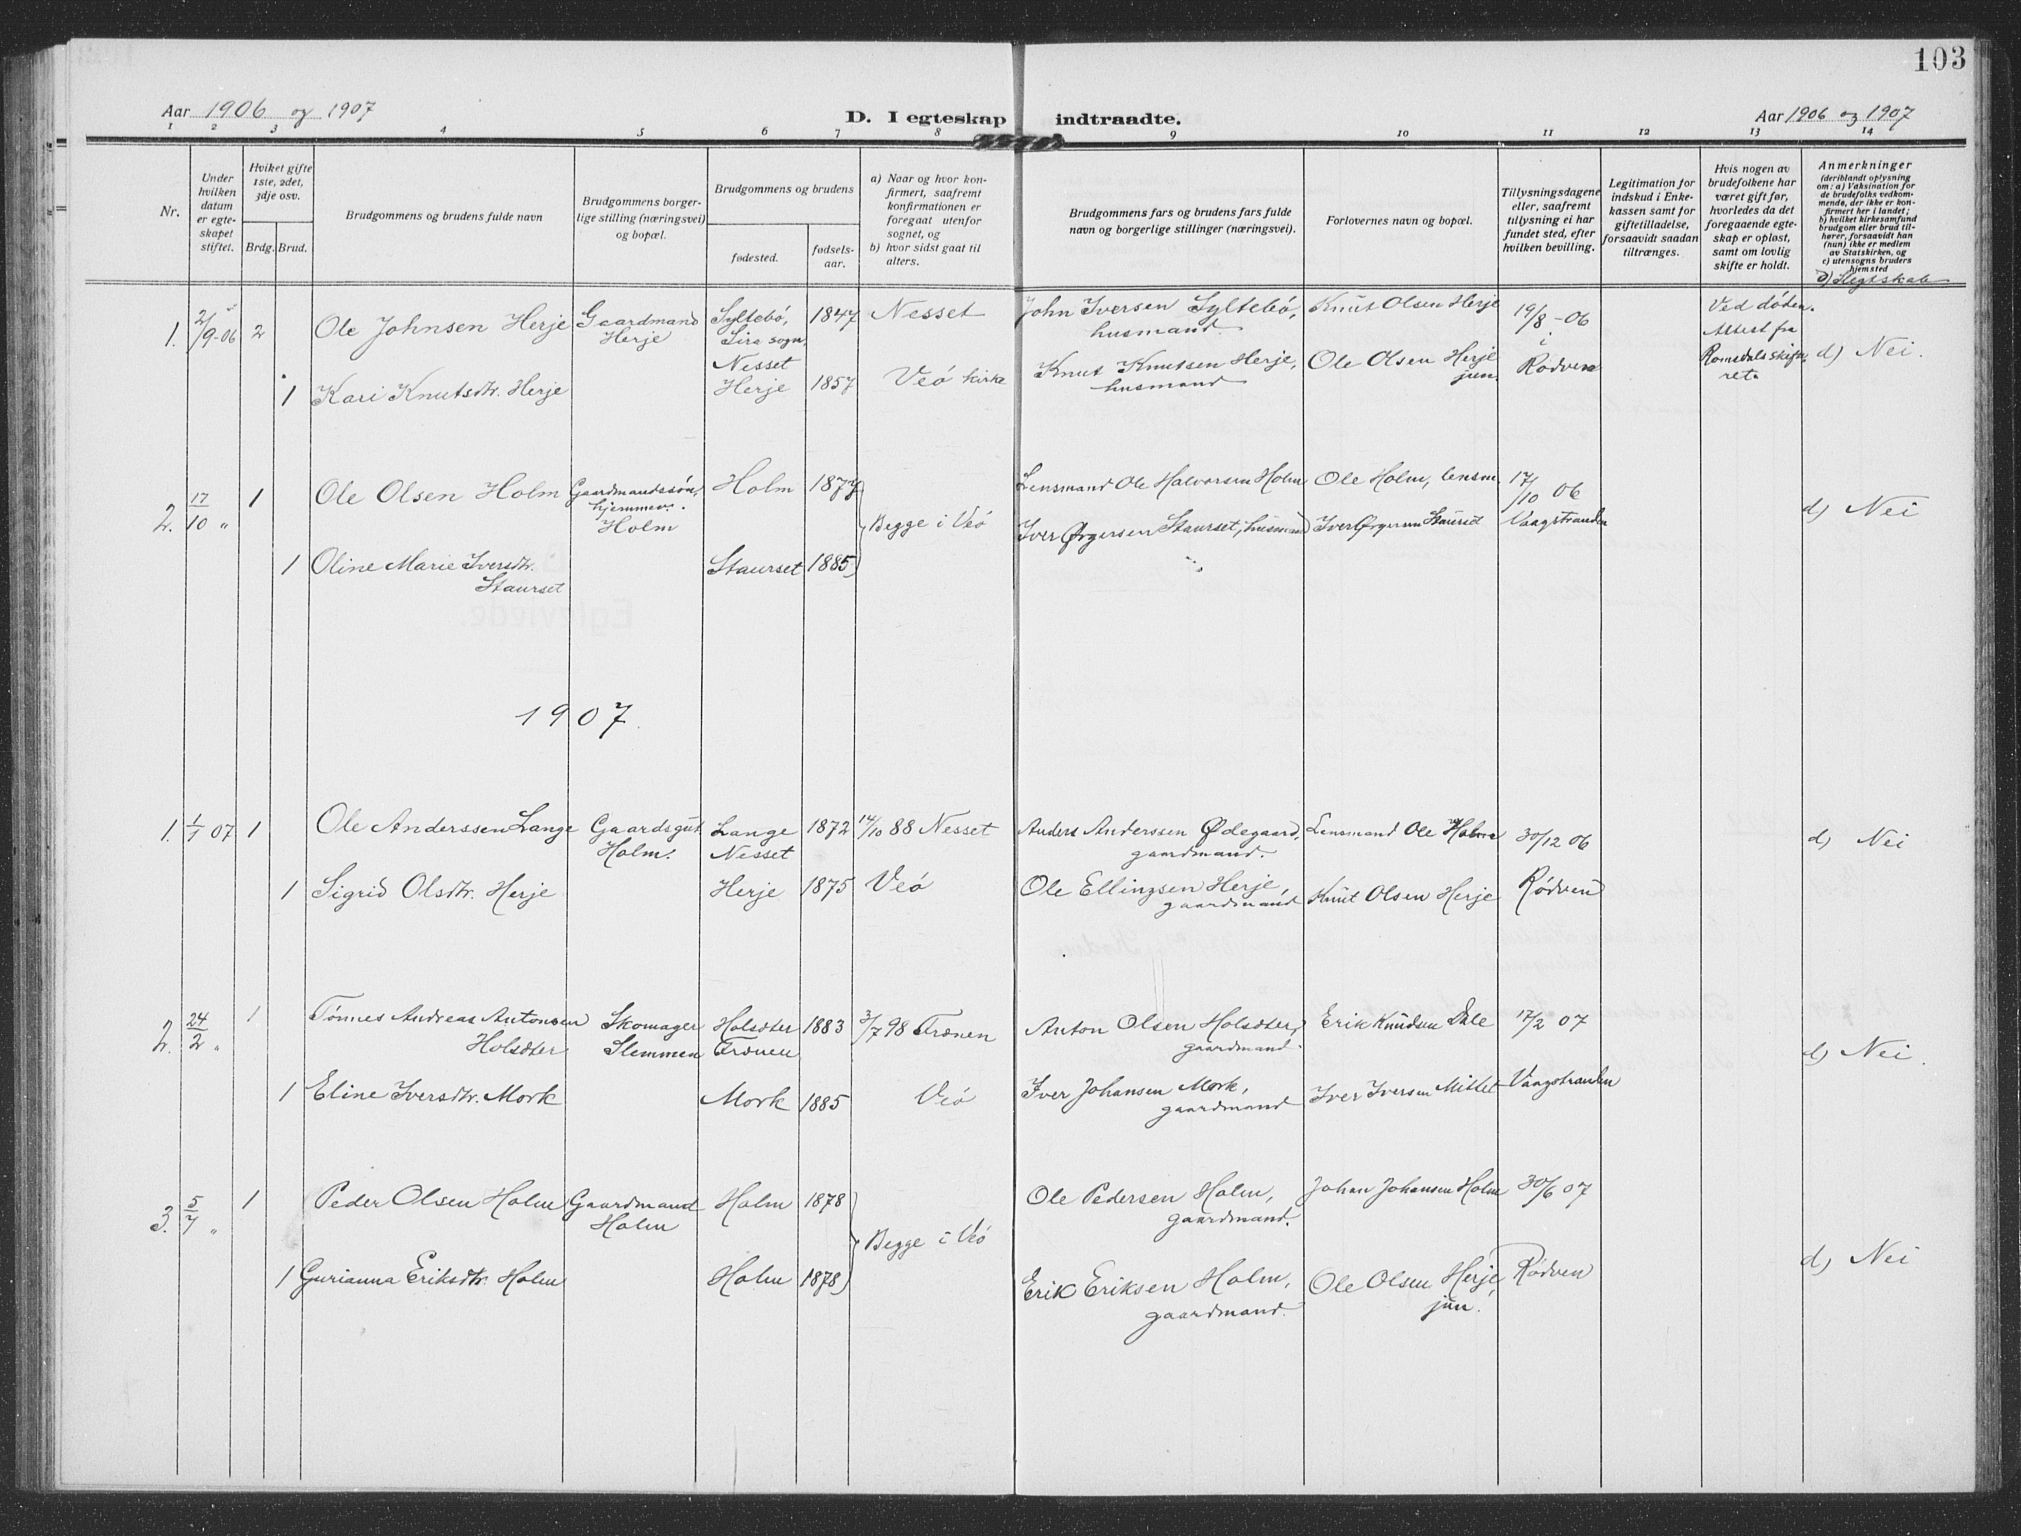 103
Aar 1906 og 1907
D. I egteskap indtraadte.
Aar 1906 og 1907
1 2 3 4 5 6 7 8 9 10 11 12 13 14
Nr.
Under hvilken datum er egteskapet stiftet.
Hvilket gifte 1ste, 2det, 3dje osv.
Brdg. Brud.
Brudgommens og brudens fulde navn
Brudgommens borgerlige stilling (næringsvei) og bopæl.
Brudgommens og brudens
fødested.
fødselsaar.
a) Naar og hvor konfirmert, saafremt konfirmationen er foregaat utenfor sognet, og
b) hvor sidst gaat til alters.
Brudgommens fars og brudens fars fulde navn og borgerlige stillinger (næringsvei).
Forlovernes navn og bopæl.
Tillysningsdagene eller, saafremt tillysning ei har fundet sted, efter hvilken bevilling.
Legitimation for indskud i Enkekassen samt for giftetilladelse, forsaavidt saadan tiltrænges.
Hvis nogen av brudefolkene har været gift før, hvorledes da det foregaaende egteskap er opløst, samt om lovlig skifte er holdt.
Anmerkninger
(deriblandt oplysning om: a) Vaksination for de brudefolks vedkommende, der ikke er konfirmert her i landet;
b) hvilket kirkesamfund brudgom eller brud tilhører, forsaavidt han (hun) ikke er medlem av Statskirken, og
c) utensogns bruders hjemsted
d) Slegtskab
1. 2/9-06 2 Ole Johnsen Herje Gaardmand Herje Syltebö, Lira sogn, Nesset 1847 Nesset John Iversen Syltebö, husmand Knut Olsen Herje 19/8-06 i Rødven Ved døden. Attest fra Romsdals skifteret. d) Nei.
1 Kari Knutsdtr. Herje Herje 1857 Veö kirke Knut Knutsen Herje, husmand Ole Olsen Herje jun.
2. 17/10 " 1 Ole Olsen Holm Gaardmandssön, hjemmev. Holm Holm 1877 Begge i Veö Lensmand Ole Halvorsen Holm Ole Holm, lensm 17/10 06 Vaagstranden d) Nei
1 Oline Marie Iversdtr. Staurset Staurset 1885 Iver Ørgersen Staurset, husmand Iver Ørgersen Staurset
1907.
1. 1/1 07 1 Ole Anderssen Lange Gaardsgut Holm. Lange Nesset 1872 14/10 88 Nesset Anders Anderssen Ødegaard, gaardmand. Lensmand Ole Holm 30/12 06 Rødven d) Nei
1 Sigrid Olsdtr. Herje Herje 1875 Veö Ole Ellingsen Herje, gaardmand Knut Olsen Herje
2. 24/2 " 1 Tønnes Andreas Antonsen Holsæter Skomager Slemmen Holsæter Frænen 1883 3/7 98 Frænen Anton Olsen Holsæter, gaardmand. Erik Knudsen Dale 17/2 07 Vaagstranden d) Nei.
1 Eline Iversdtr. Mork Mork 1885 Veö Iver Johansen Mork, gaardmand Iver Iversen Mittet
3. 5/7 " 1 Peder Olsen Holm Gaardmand Holm Holm 1878 Begge i Veö Ole Pedersen Holm, gaardmand. Johan Johansen Holm 30/6 07 Rødven d) Nei
1 Gurianna Eriksdtr. Holm Holm 1878 Erik Eriksen Holm, gaardmand. Ole Olsen Herje, jun.